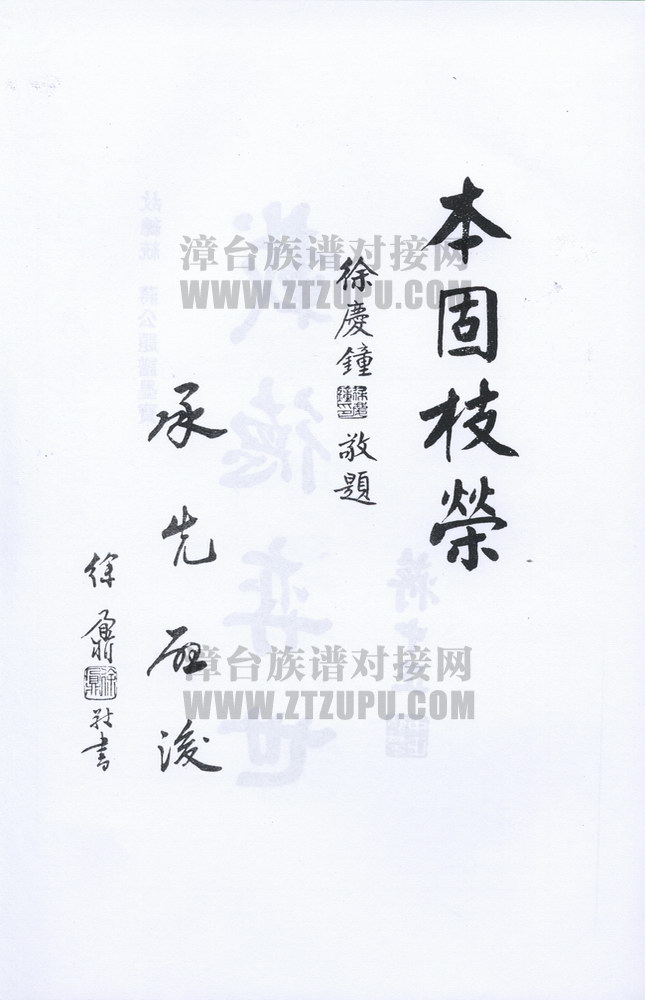 本固枝榮
徐慶鐘 敬題
承先啟後
徐鼐 敬書
漳台族谱对接网
WWW.ZTZUPU.COM
漳台族谱对接网
WWW.ZTZUPU.COM